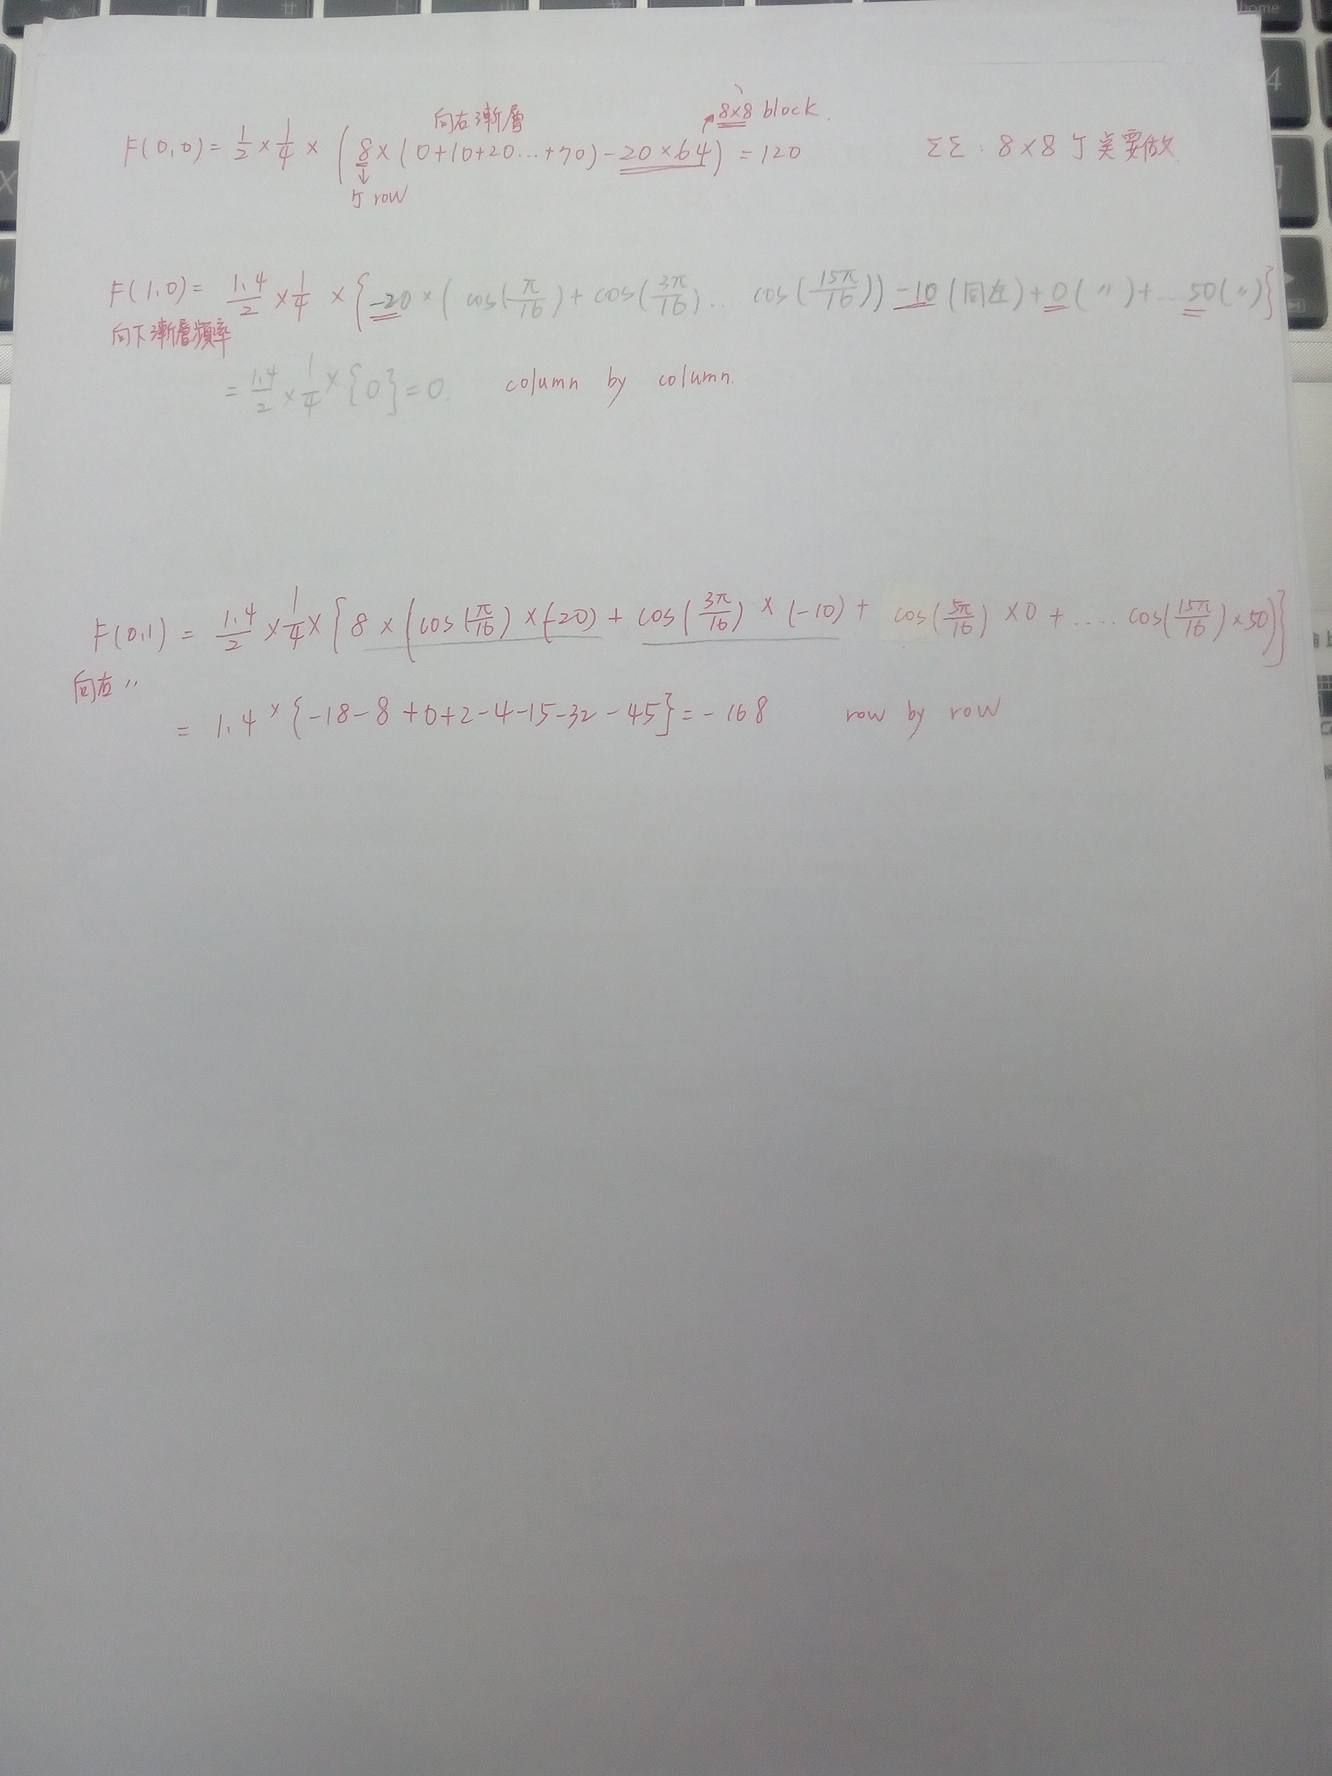 向右漸層
8×8 block.
F(0,0) = 1/2 × 1/4 × (8×(0+10+20...+70)-20×64) = 120
ΣΣ: 8×8 万 美要做
row
F(1,0) = 1.4/2 × 1/4 × {-20 × (cos(π/16) + cos(3π/16)... cos(15π/16)) -10 (同左) + 0 (〃) + ... 50 (〃)}
向下漸層頻率
= 1.4/2 × 1/4 × {0} = 0. column by column.
F(0,1) = 1.4/2 × 1/4 × {8 × (cos(π/16) × (-20) + cos(3π/16) × (-10) + cos(5π/16) × 0 + .... cos(15π/16) × 50)}
向右 〃
= 1.4 × {-18-8+0+2-4-15-32-45} = -168 row by row